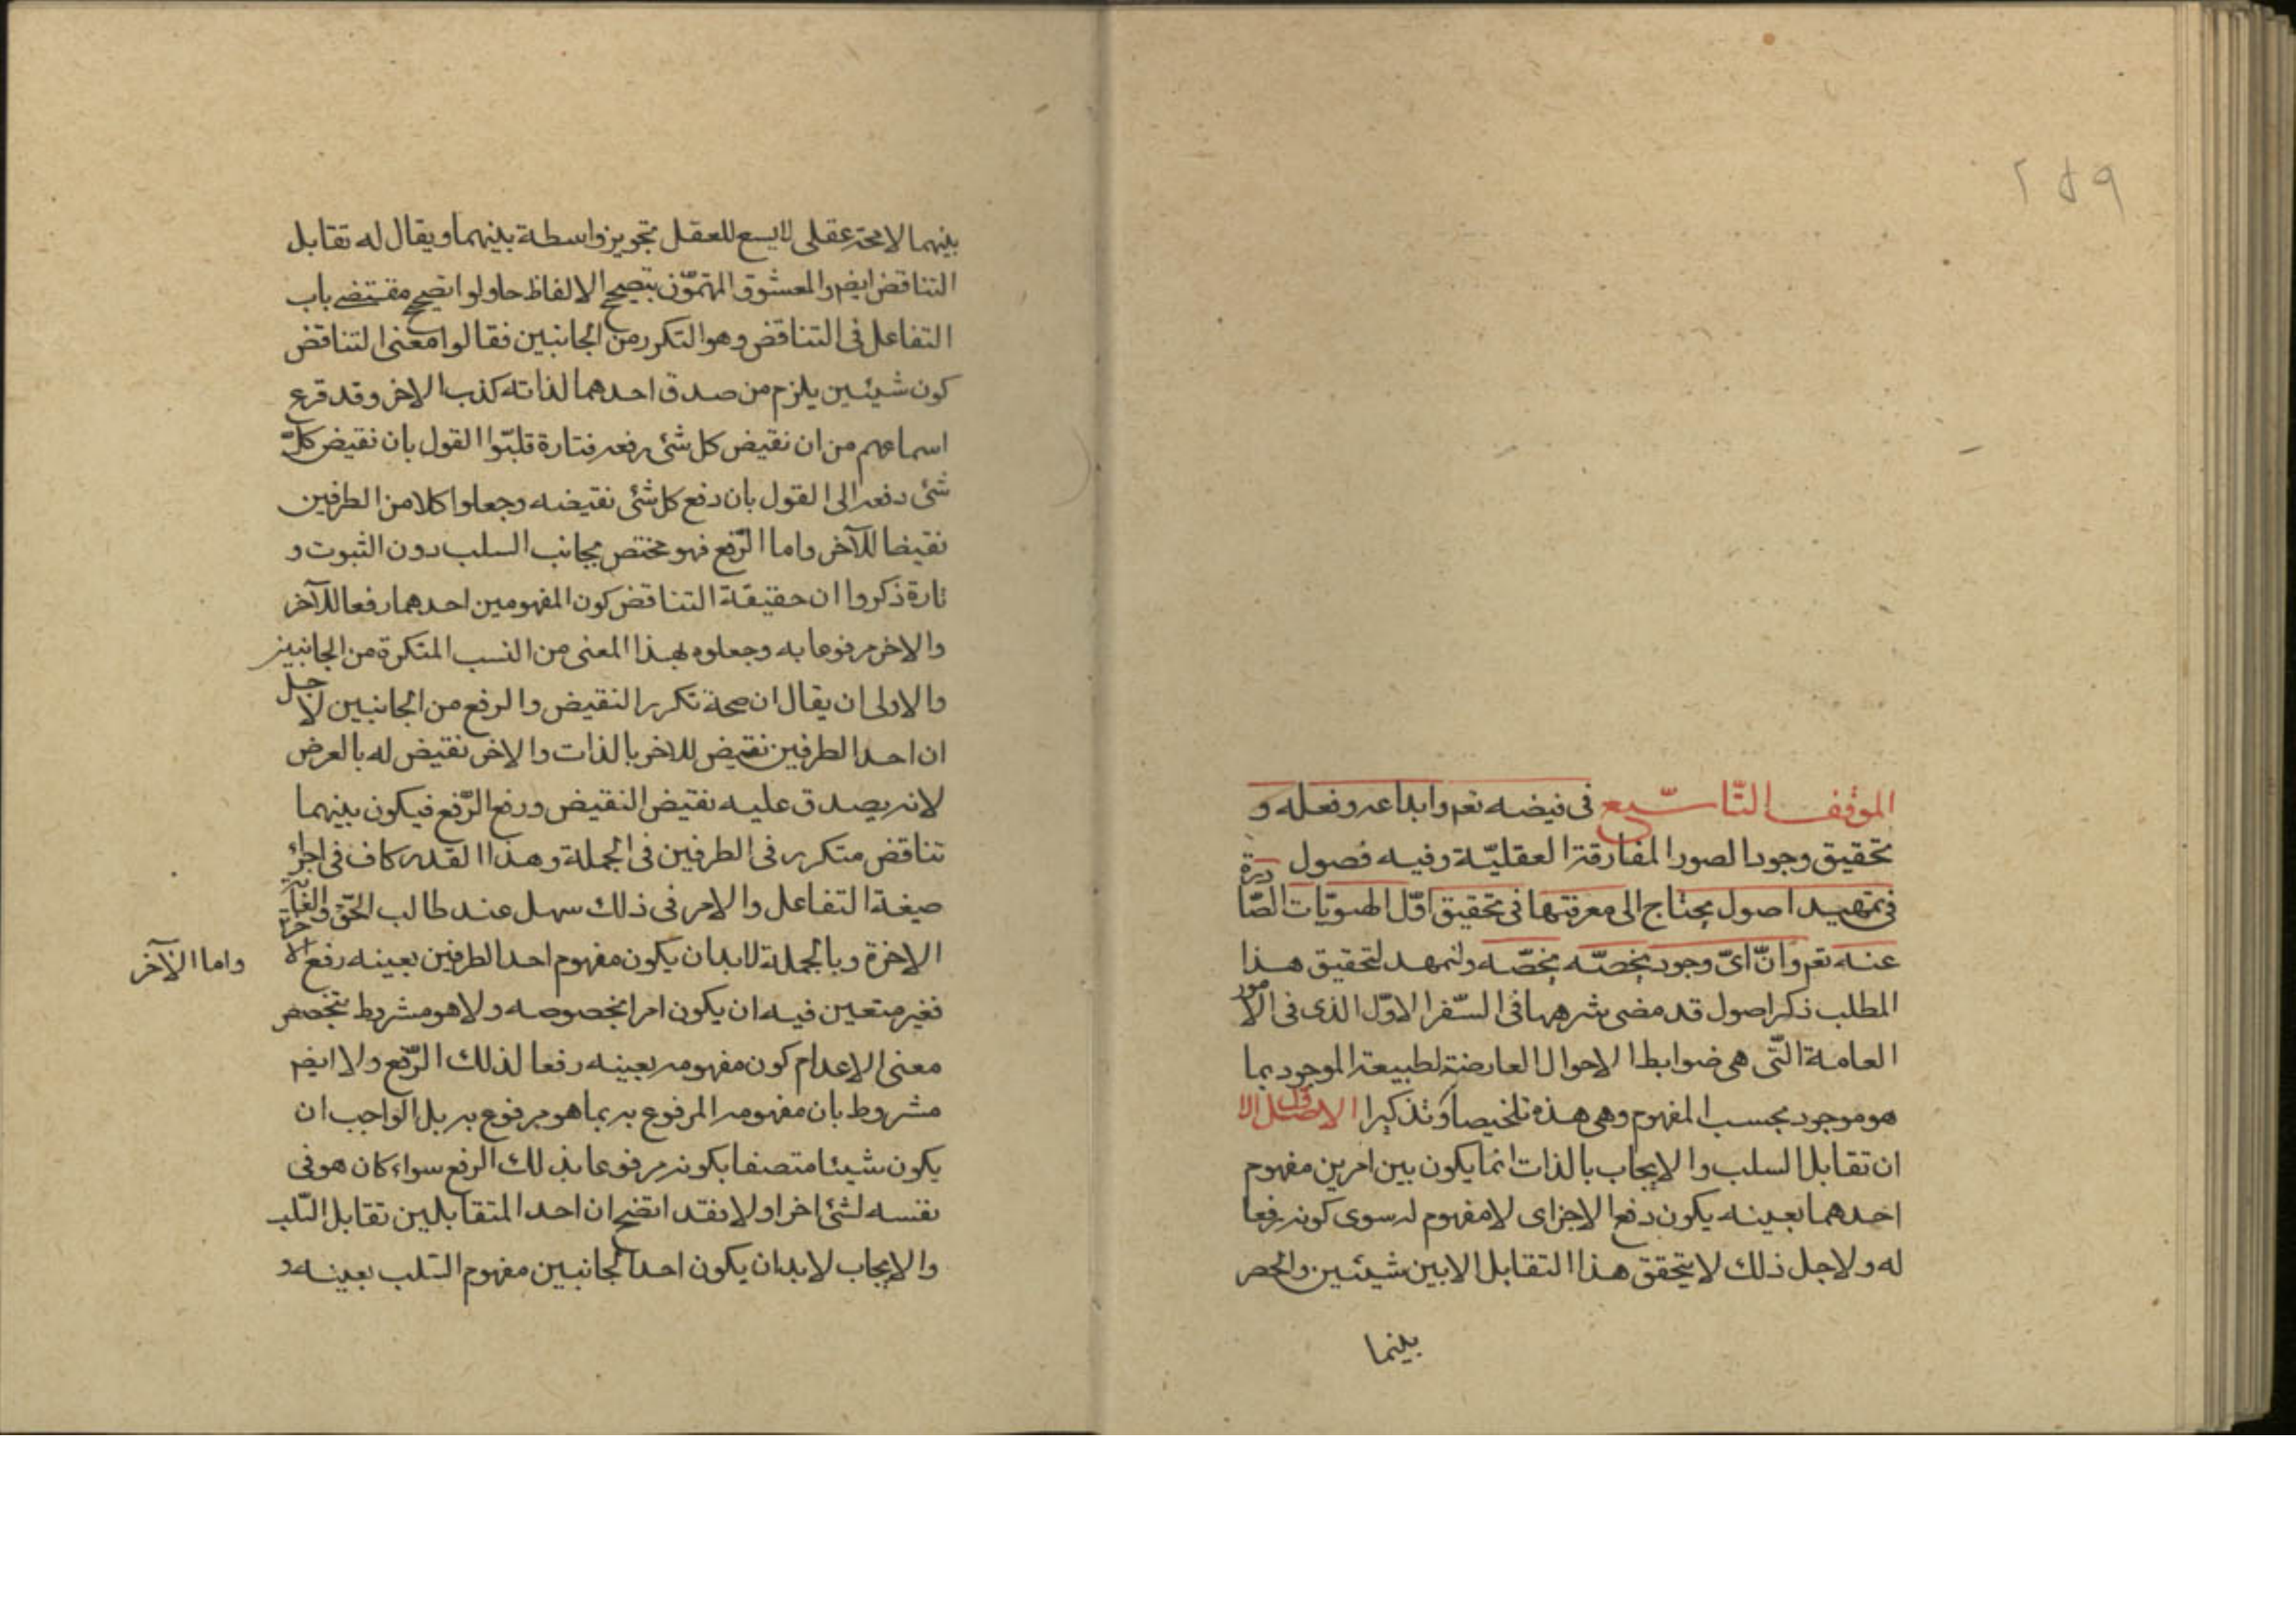 ٢٥٩
الموقف التاسع فى فيضه تعم وابداعه وفعله و
تحقيق وجود الصور المفارقة العقليّة وفيه فصول
فى تمهيد اصول يحتاج الى معرفتها فى تحقيق اوّل الهويّات الصّادرة
عنه تعم وانّ اىّ وجود يخصّه يخصّه ولنمهد لتحقيق هذا
المطلب ذكر اصول قد مضى شرحها فى السّفر الاوّل الذى فى الامور
العامة الّتى هى ضوابط الاحوال العارضة لطبيعة الموجود بما
هو موجود بحسب المفهوم وهى هذه تلخيصا وتذكيرا الاصل الاول
ان تقابل السلب والايجاب بالذات انما يكون بين امرين مفهوم
احدهما بعينه يكون رفع الاخر اى لا مفهوم له سوى كونه رفعا
له ولاجل ذلك لا يتحقق هذا التقابل الا بين شيئين والحصر
بينهما
بينهما لا محة عقلى لا يسع للعقل تجويز واسطة بينهما ويقال له تقابل
التناقض ايضم والمتمّون بتصحيح الالفاظ حاولوا تصحيح مقتضى باب
التفاعل فى التناقض وهو التكرر من الجانبين فقالوا معنى التناقض
كون شيئين يلزم من صدق احدهما لذاته كذب الاخر وقد قرع
اسماعهم من ان نقيض كل شئ رفعه فتارة قلبّوا القول بان نقيض كلّ
شئ رفعه الى القول بان رفع كل شئ نقيضه وجعلوا كلا من الطرفين
نقيضا للآخر واما الرّفع فهو مختص بجانب السلب دون الثبوت و
تارة ذكروا ان حقيقة التناقض كون المفهومين احدهما رفعا للآخر
والاخر مرفوعا به وجعلوه بهذا المعنى من النسب المتكررة من الجانبين
والاولى ان يقال ان صحة تكرر النقيض والرفع من الجانبين لاجل
ان احد الطرفين نقيض للاخر بالذات والاخر نقيض له بالعرض
لانه يصدق عليه نقيض النقيض ورفع الرّفع فيكون بينهما
تناقض متكرر فى الطرفين فى الجملة وهذا القدر كاف فى اجراء
صيغة التفاعل والامر فى ذلك سهل عند طالب الحقّ والغاية
الاخرة وبالجملة لا بد ان يكون مفهوم احد الطرفين بعينه رفع الاخر
واما الآخر
فغير متعين فيه ان يكون امرا بخصوصه ولا هو مشروط بتخصص
معنى الاعدام كون مفهومه بعينه رفعا لذلك الرّفع ولا ايضم
مشروط بان مفهومه المرفوع به بما هو مرفوع به بل الواجب ان
يكون شيئا متصفا بكونه مرفوعا بذلك الرفع سواء كان هو فى
نفسه لشئ اخر او لا فقد اتضح ان احد المتقابلين تقابل السّلب
والايجاب لا بد ان يكون احد الجانبين مفهوم السّلب بعينه و